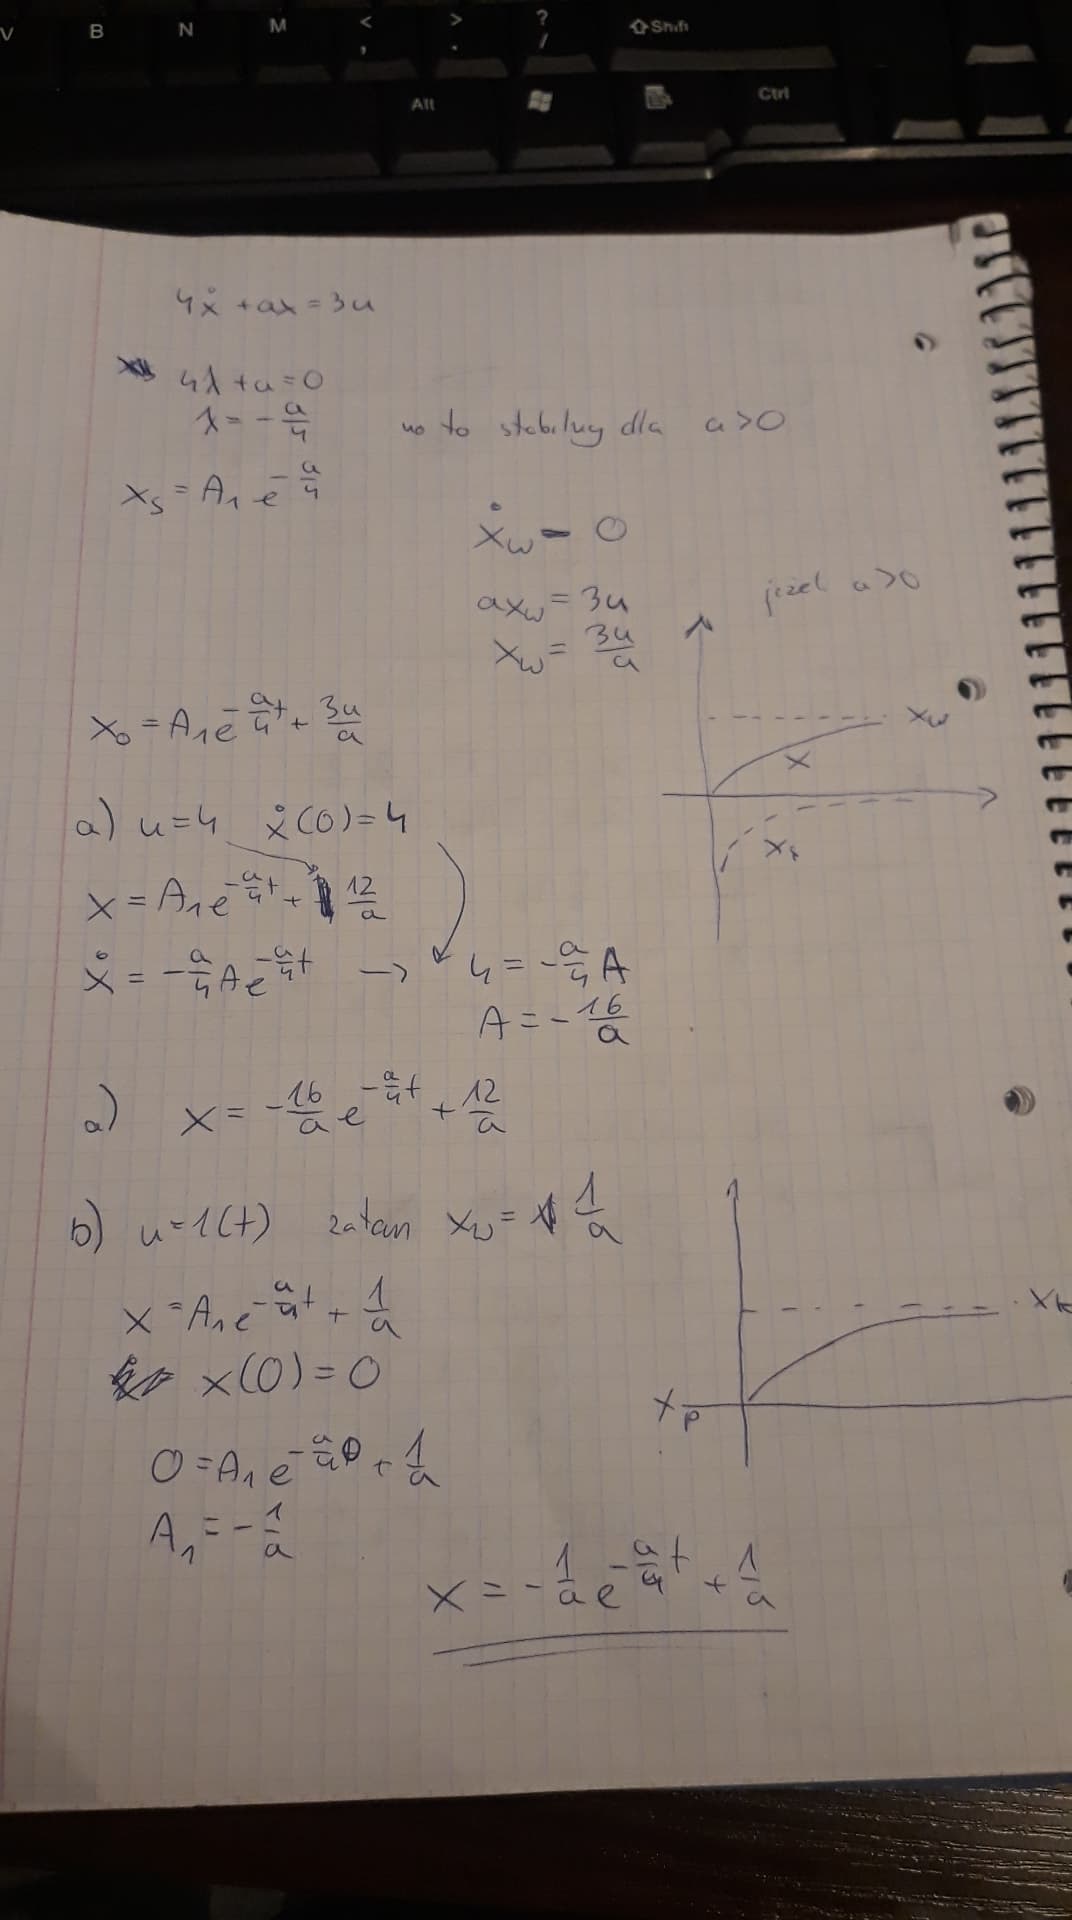 V B N M < , > . ? / ⇧Shift
Alt Ctrl
4ẋ + ax = 3u
4λ + a = 0
λ = -a/4 no to stabilny dla a>0
x_s = A₁ e^(-a/4)
ẋ_w = 0
ax_w = 3u
x_w = 3u/a
jeżel a>0
x_w
x
x_s
x₀ = A₁e^(-a/4 t) + 3u/a
a) u=4 ẋ(0)=4
x = A₁e^(-a/4 t) + 12/a
ẋ = -a/4 A e^(-a/4 t) → 4 = -a/4 A
A = -16/a
a) x = -16/a e^(-a/4 t) + 12/a
b) u=1(t) zatam x_w = 1/a
x = A₁e^(-a/4 t) + 1/a
x(0) = 0
x_k
x_p
0 = A₁ e^(-a/4 0) + 1/a
A₁ = -1/a
x = -1/a e^(-a/4 t) + 1/a